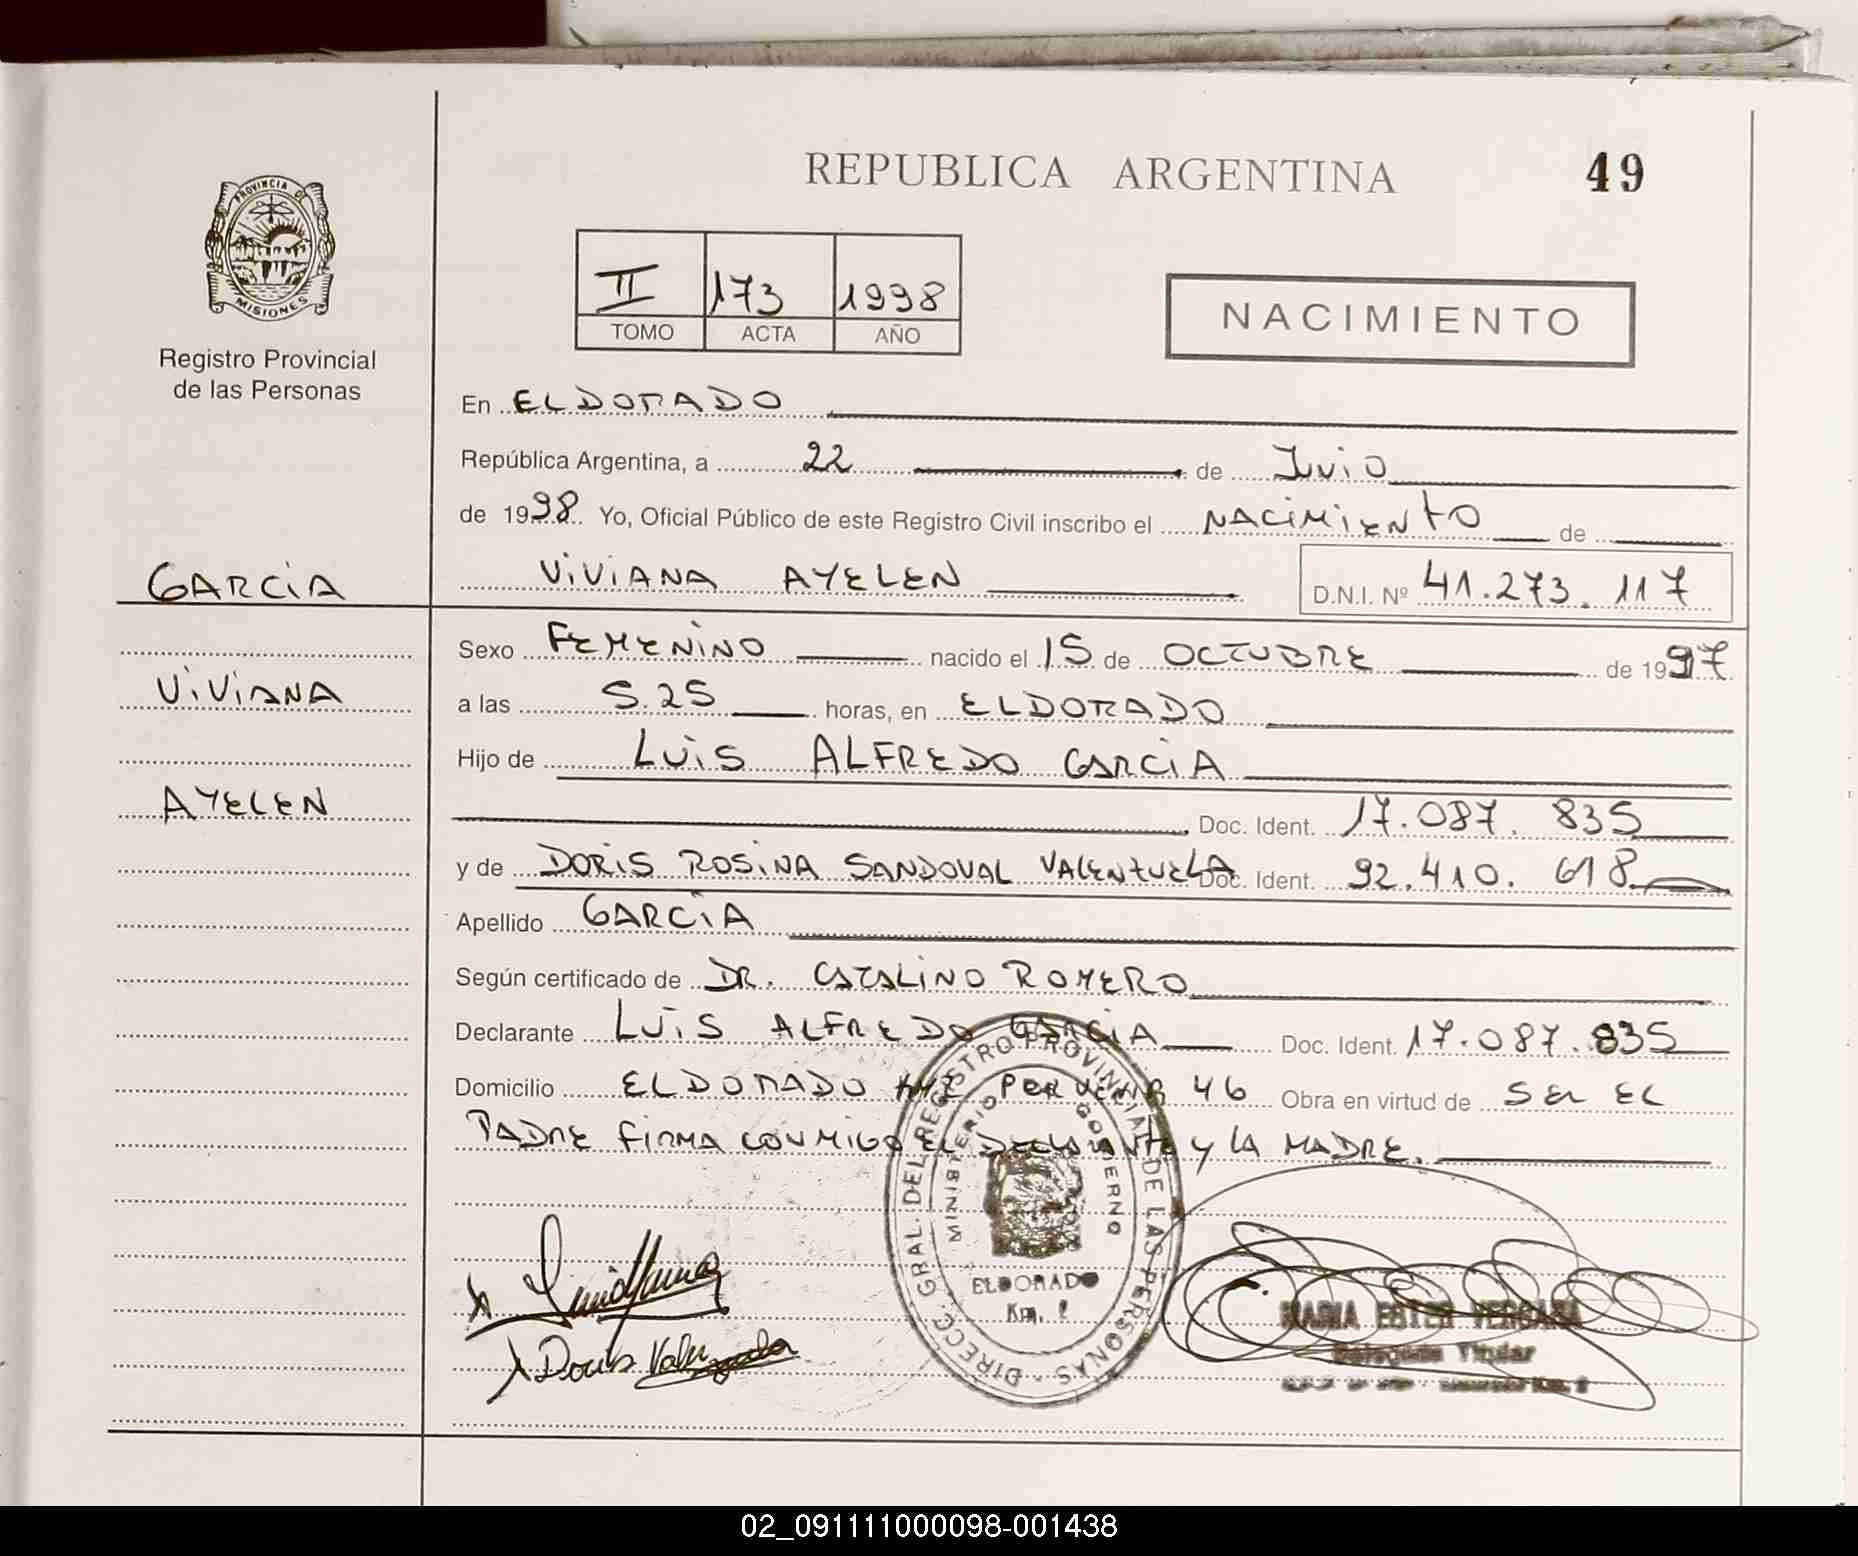 REPUBLICA ARGENTINA
49
PROVINCIA DE
MISIONES
Registro Provincial
de las Personas
II 173 1998
TOMO ACTA AÑO
NACIMIENTO
En ELDORADO
República Argentina, a 22 de Junio
de 1998 Yo, Oficial Público de este Registro Civil inscribo el NACIMIENTO de
GARCIA
VIVIANA AYELEN D.N.I. Nº 41.273.117
Sexo FEMENINO nacido el 15 de OCTUBRE de 1997
VIVIANA
a las 5.25 horas, en ELDORADO
Hijo de LUIS ALFREDO GARCIA
AYELEN
Doc. Ident. 17.087.835
y de DORIS ROSINA SANDOVAL VALENZUELA Doc. Ident. 92.410.618
Apellido GARCIA
Según certificado de DR. CATALINO ROMERO
Declarante LUIS ALFREDO GARCIA Doc. Ident. 17.087.835
Domicilio ELDORADO PORVENIR 46 Obra en virtud de SER EL
PADRE FIRMA CONMIGO EL DECLARANTE Y LA MADRE.
DIRECC. GRAL. DEL REGISTRO PROVINCIAL DE LAS PERSONAS
MINISTERIO GOBIERNO
ELDORADO
Km.
Doris Valenzuela
MARIA ESTER VERGARA
Delegada Titular
02_091111000098-001438